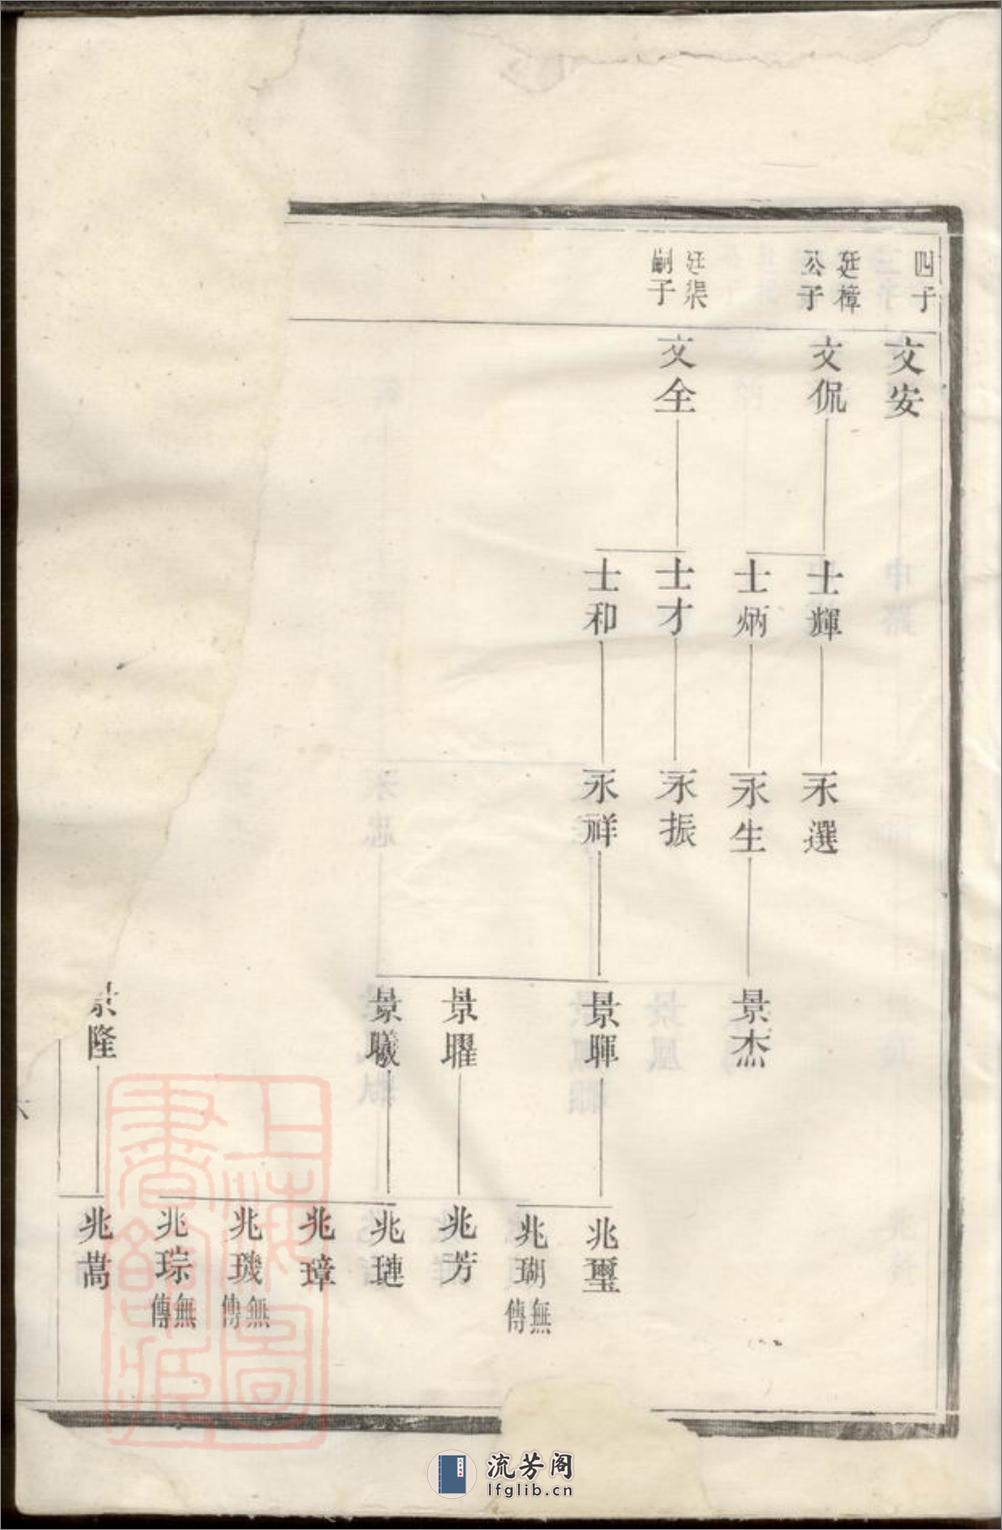 四子
文安
廷樟
公子
文侃
士輝
永選
士炳
永生
景杰
廷渠
嗣子
文全
士才
永振
士和
永祥
景暉
兆璽
兆瑚
無傳
景曜
兆芳
景曦
兆璉
兆璋
兆璣
無傳
兆琮
無傳
景隆
兆蒿
六
上海圖書館藏
流芳阁
lfglib.cn